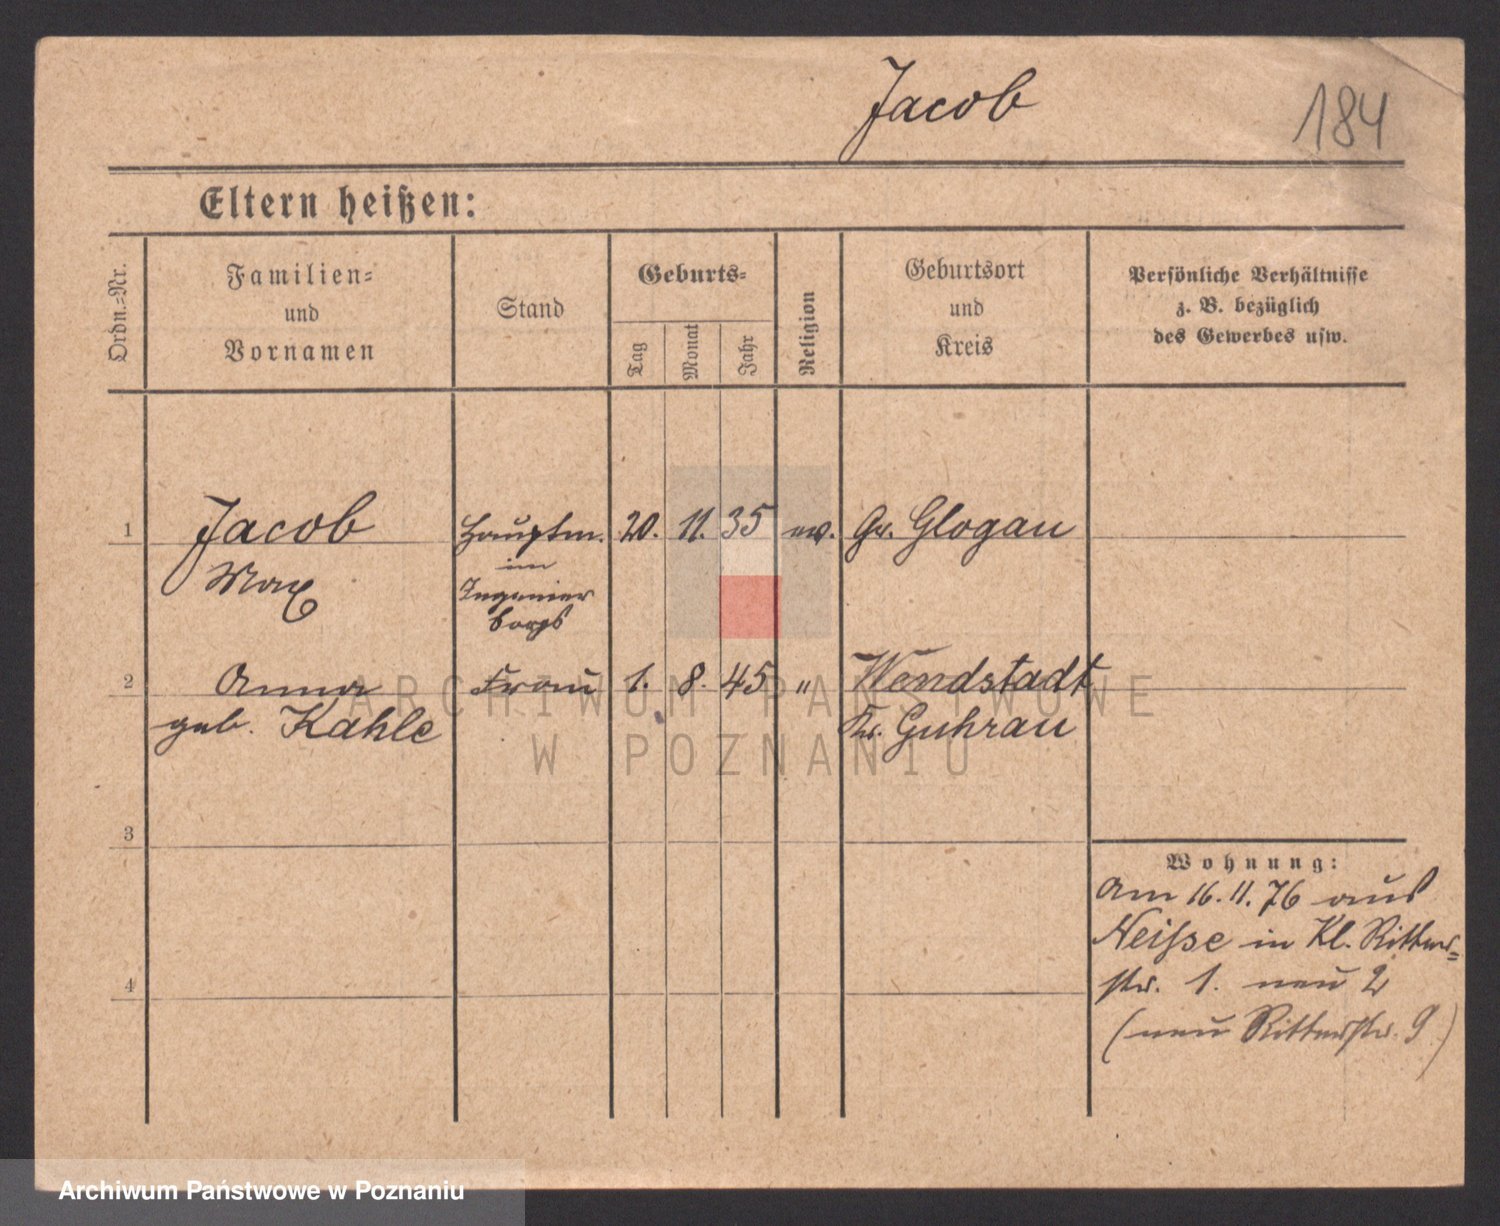 Jacob
184
Eltern heißen:
Ordn.-Nr.
Familien-
und
Vornamen
Stand
Geburts-
Tag
Monat
Jahr
Religion
Geburtsort
und
Kreis
Persönliche Verhältnisse
z. B. bezüglich
des Gewerbes usw.
1
Jacob
Max
Hauptm.
im
Ingenier
Corps
20.
11.
35
ev.
Gr. Glogau
2
Anna
geb. Kahle
Frau
1.
8.
45
"
Wendstadt
Kr. Guhrau
3
4
Wohnung:
Am 16.11.76 aus
Neisse in Kl. Ritter=
str. 1. neu 2
(neu Ritterstr. 9)
ARCHIWUM PAŃSTWOWE
W POZNANIU
Archiwum Państwowe w Poznaniu